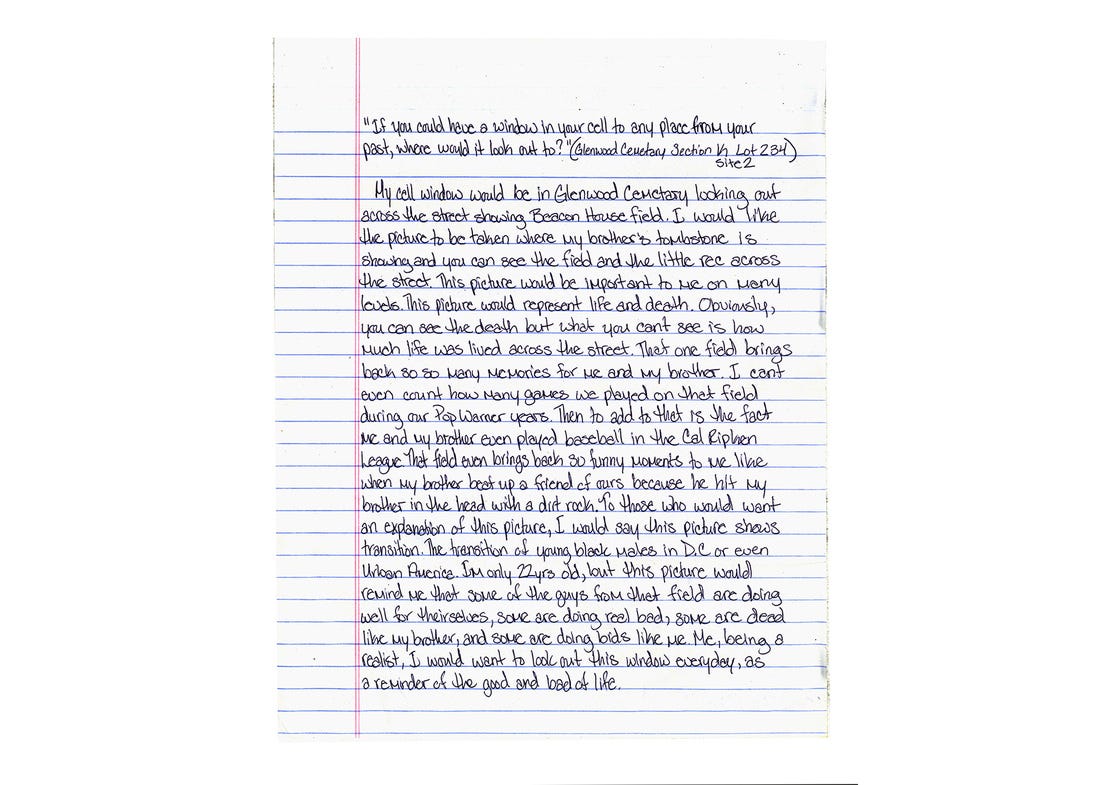 "If you could have a window in your cell to any place from your
past, where would it look out to?" (Glenwood Cemetary Section K Lot 234)
site 2
My cell window would be in Glenwood Cemetary looking out
across the street showing Beacon House field. I would like
the picture to be taken where my brother's tombstone is
showing and you can see the field and the little rec across
the street. This picture would be important to me on many
levels. This picture would represent life and death. Obviously,
you can see the death but what you cant see is how
much life was lived across the street. That one field brings
back so so many memories for me and my brother. I cant
even count how many games we played on that field
during our Pop Warner years. Then to add to that is the fact
me and my brother even played baseball in the Cal Ripken
League. That field even brings back so funny moments to me like
when my brother beat up a friend of ours because he hit my
brother in the head with a dirt rock. To those who would want
an explanation of this picture, I would say this picture shows
transition. The transition of young black males in D.C or even
Urban America. Im only 22yrs old, but this picture would
remind me that some of the guys from that field are doing
well for theirselves, some are doing real bad, some are dead
like my brother, and some are doing bids like me. Me, being a
realist, I would want to look out this window everyday, as
a reminder of the good and bad of life.